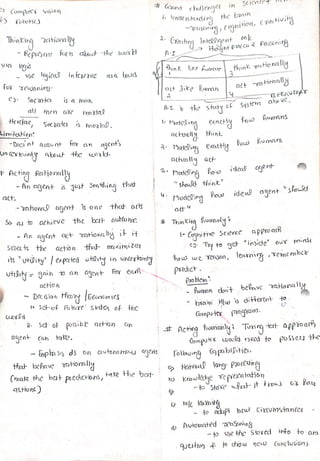 c) Computer vision
d) Robotics
Thinking rationally
- Represent facts about the world
via logic
- use logical inference as a basis
for reasoning.
all men are mortal
therefore, Socrates is mortal.
Limitation:
uncertainty about the world.
# Acting Rationally
- An agent is just something that
acts.
- rational agent is one that acts
so as to achieve the best outcome.
- An agent act rationally if it
selects the action that maximizes
its "utility" / expected utility in uncertainty
utility = gain to an agent for
action
- Decision theory / Economics
set of future states of the
world
2. set of possible action an
agent can take.
- Emphasis on autonomous agents
that behave rationally
(make the best predictions, take the best
actions)
# Grand challenges in science
1. Understanding the brain
- reasoning, cognition, creativity
2. Creating Intelligent
A.I
think like human
think rationally
act like human
act rationally
A.I. is the study of system
1. Modeling exactly how humans
actually think
2. Modeling exactly how humans
actually act
3. Modeling how ideal agent
"should think"
4. Modeling how ideal agent "should
act"
# Thinking humanly:
- Cognitive science approach
Try to get "inside" our minds
how we reason, learning, remember
predict.
Problem:
- humans don't behave rationally
- brains is different to
computer programs.
# Acting humanly: Turing test approach
Computer would need to possess the
following capabilities.
knowledge representation
- to store what it knows or
- to adapt new circumstances
Automated reasoning
- to use the stored info to
question & to draw new conclusions